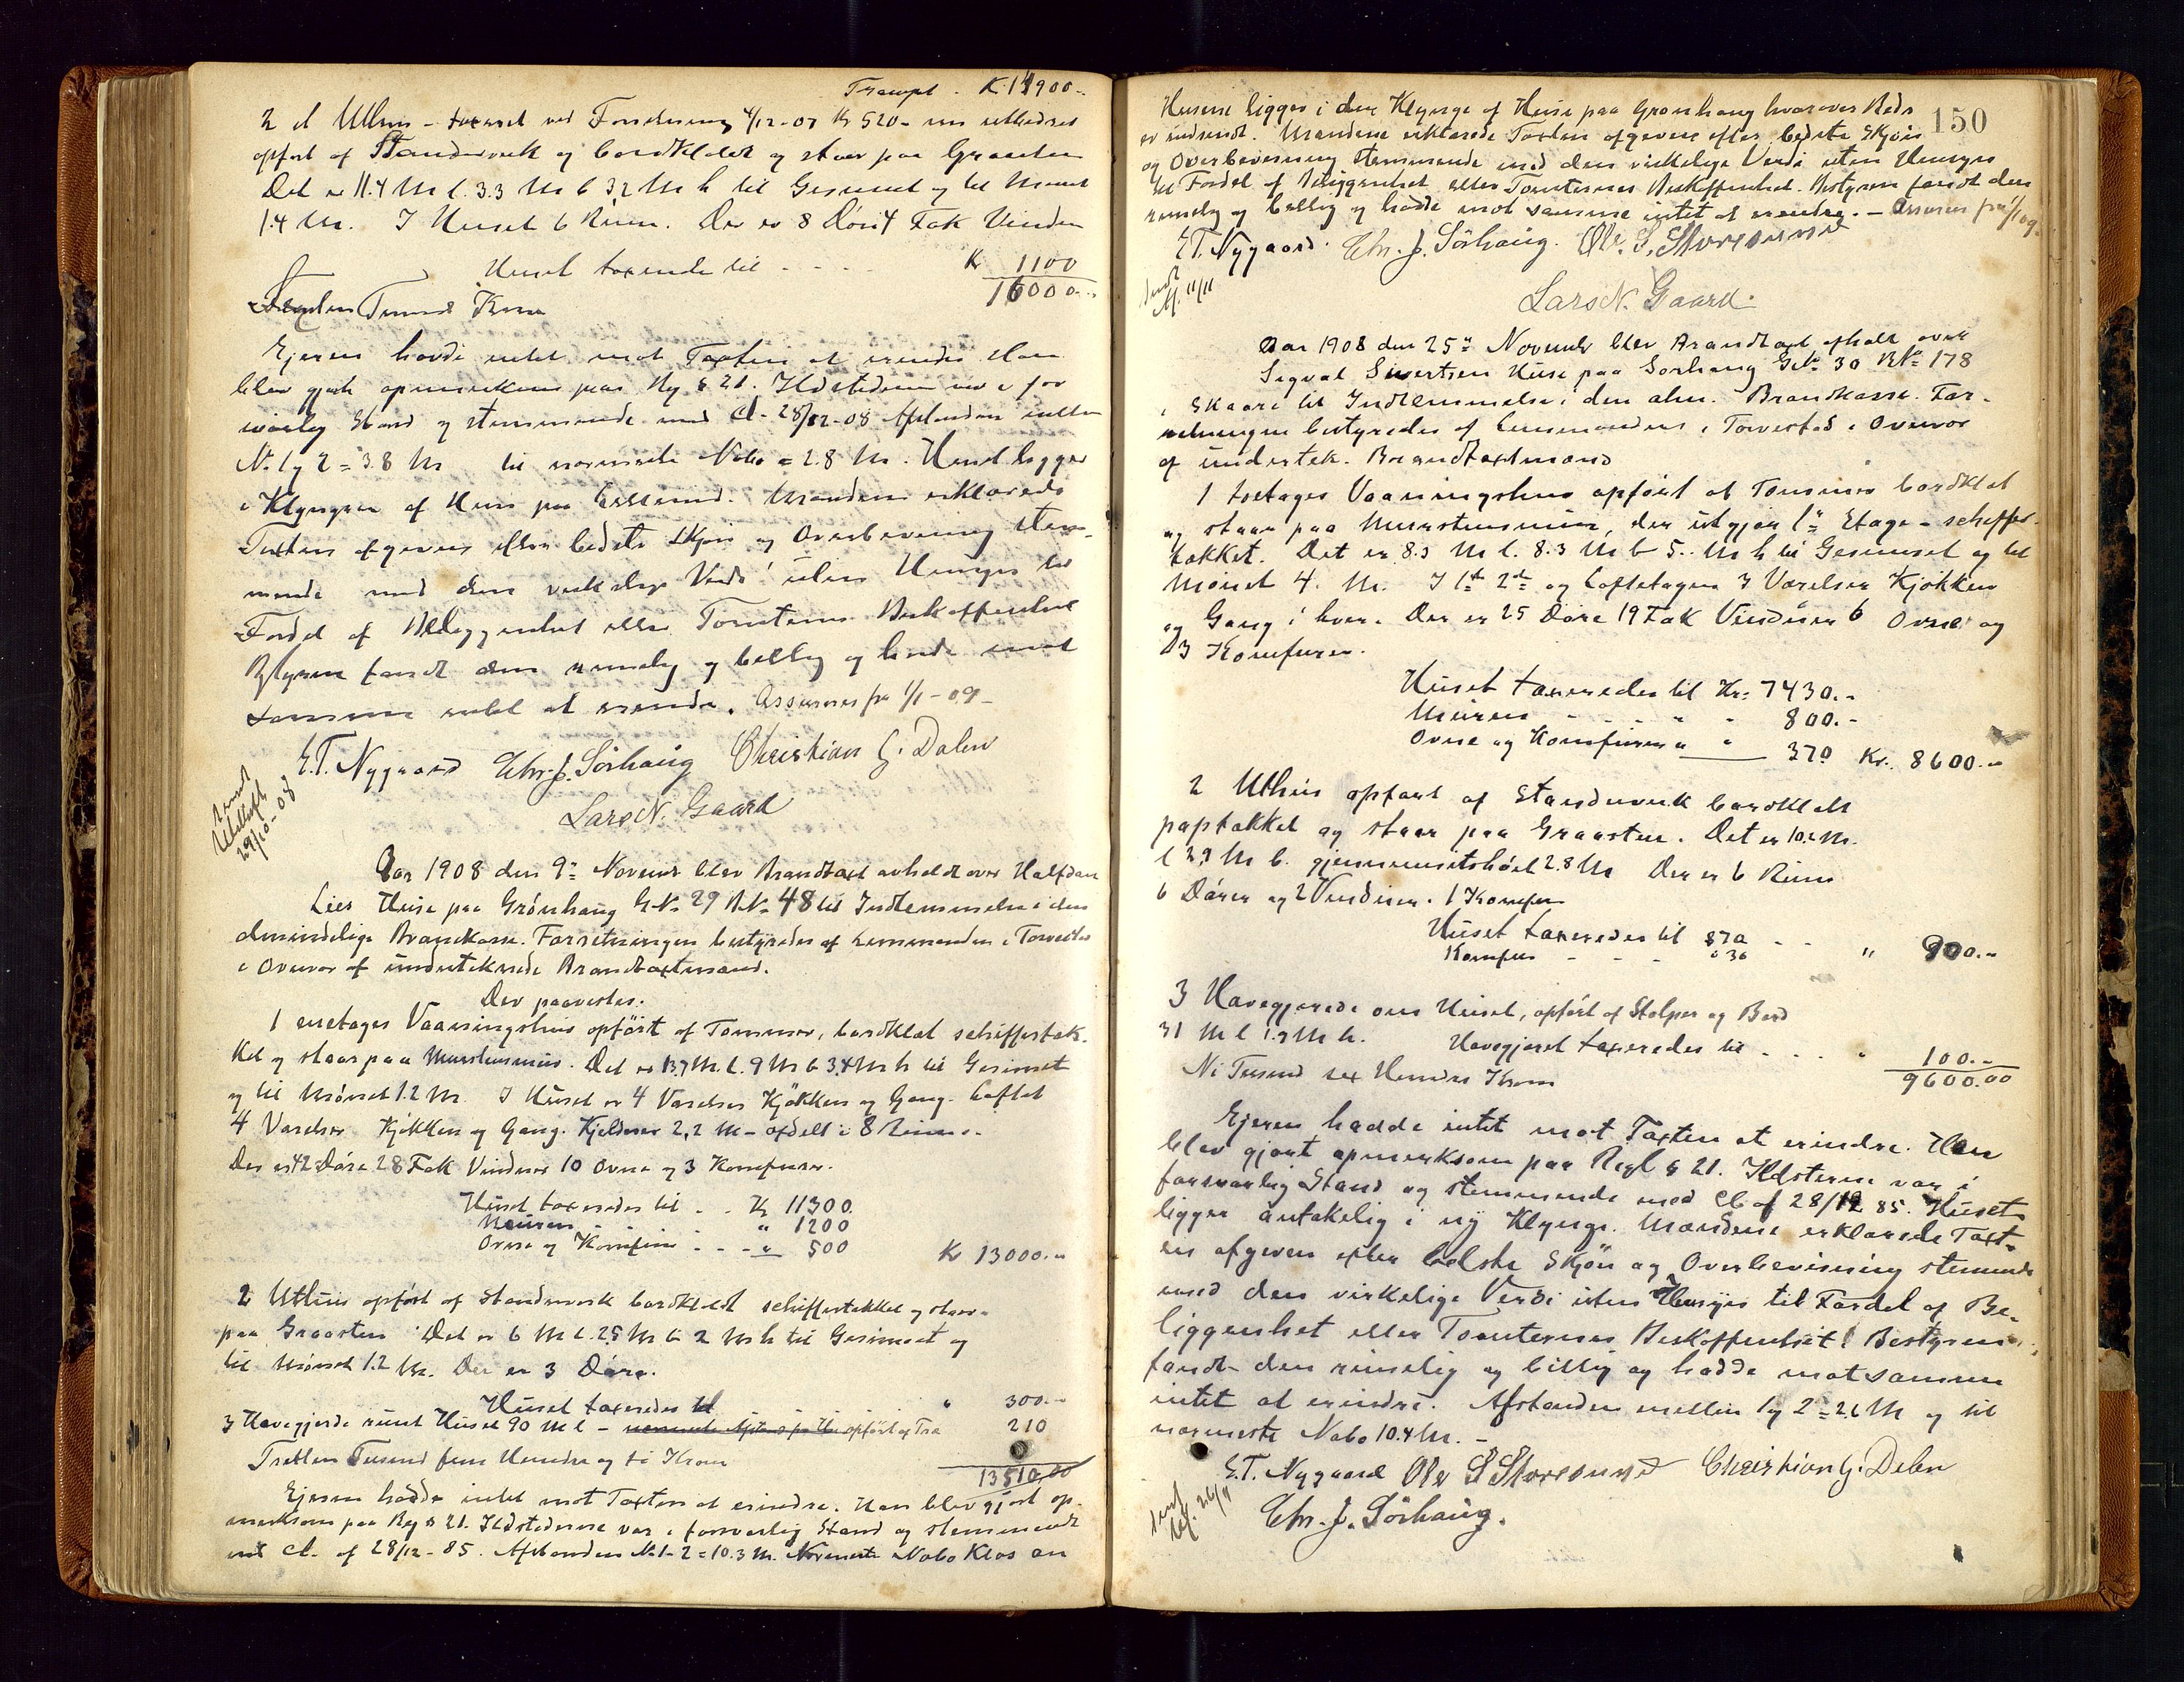 Transpt. K. 14900.-
2 d Uthus - taxeret ved Forretning 4/12-07 Kr 520 - nu utbedret
opført af Standerverk og bordklædt og staar paa Graasten
Det er 11.4 M l. 3.3 M b 3.2 M h til Gesimset og til Mønet
1.4 M. I Huset 6 Rum. Der er 8 Døre 4 Fak Vinduer
Huset taxerede til - - - Kr 1100
16000.-
Sexten Tusend Kroner
Ejeren havde intet mot Taxten at erindre. Han
blev gjort opmerksom paa Rg § 21. Ildstederne var i for
svarlig Stand og stemmende med Cl. 28/12-08 Afstanden mellem
No 1 og 2 = 3.8 M til nærmeste Nabo = 2.8 M. Huset ligger
i Klyngen af Huse paa . Mændene erklærede
Taxten afgiven efter bedste Skjøn og Overbevisning stem-
mende med den virkelige Verdi uten Hensyn til
Fordel af Beliggenhet eller Tomternes Beskaffenhet
Bstyren fandt den rimelig og billig og havde mot
samme intet at erindre. Assureres fra 1/1-09-
E.T. Nygaard Chr. J. Sørhaug Christian G. Dalen
Lars N. Gaard
sendt
Utskrift
29/10-08
Aar 1908 den 9de Novemb blev Brandtaxt avholdt over Halfdan
Lies Huse paa Grønhaug G.No 29 B.No 48 til Indlemmelse i den
almindelige Brandkasse. Forretningen bestyredes af Lensmanden i Torvestad
i Overvær af underteknede Brandtaxtmænd.
Der paavistes:
1 enetages Vaaningshus opført af Tømmer, bordklæt schiffertæk-
ket og staar paa Murstensmur. Det er 13.7 M. l. 9 M b 3.4 M h til Gesimset
og til Mønet 1.2 M. I Huset er 4 Værelser Kjøkken og Gang. Loftet
4 Værelser Kjøkken og Gang. Kjelderen 2,2 M - afdelt i 8 Rum.
Der er 42 Døre 28 Fak Vinduer 10 Ovne og 3 Komfurer.
Huset taxeredes til . . Kr 11300.
Muren - - - " 1200
Ovne og Komfure - - - " 500 Kr 13000.-
2 Uthus opført af Standerverk bordklædt schiffertækket og staar
paa Graasten Det er 6 M l. 2.5 M b 2 M h til Gesimset og
til Mønet 1.2 M. Der er 3 Døre.
Huset taxeredes til " 300.-
3 Havegjerde rundt Huset 90 M l - opført af Træ 210
Tretten Tusend fem Hundre og ti Kroner
13510,00
Ejeren hadde intet mot Taxten at erindre. Han blev gjort op-
merksom paa Reg § 21. Ildstederne var i forsvarlig Stand og stemmende
med Cl. af 28/12-85. Afstanden No 1-2 = 10.3 M. Nærmeste Nabo Klos an
150
Husene ligger i den Klynge af Huse paa Grønhaug hvorover Rids
er indsendt. Mændene erklærede Taxten afgiven efter bedste Skjøn
og Overbevisning stemmende med den virkelige Verdi uten Hensyn
til Fordel af Beliggenhet eller Tomternes Beskaffenhet. Bestyren fandt den
rimelig og billig og hadde mot samme intet at erindre. - Assureres fra 1/1 09.
E.T. Nygaard. Chr. J. Sörhaug. Ole. S. Storesund
Lars N. Gaard.
sendt
Af. 11/11
Aar 1908 den 25de Novemb blev Brandtaxt afholt over
Sigval Sivertsen Huse paa Sørhaug G.No 30 B.No 178
i Skaare til Indlemmelse i den alm. Brandkasse. For-
retningen bestyredes af Lensmanden i Torvestad i Overvær
af undertek. Brandtaxtmænd
1 toetages Vaaningshus opført af Tømmer bordklæt
og staar paa Murstensmur, der utgjør 1ste Etage - schiffer-
tækket. Det er 8.3 M l. 8.3 M b 5.. M h til Gesimset og til
Mønet 4. M. I 1ste 2den og Loftetagen 3 Værelser Kjøkken
og Gang i hver. Der er 25 Døre 19 Fak Vinduer 6 Ovne og
3 Komfurer.
Huset taxeredes til Kr. 7430.-
Muren - - - " " 800.-
Ovne og Komfurer " " 370 Kr. 8600.-
2 Uthus opført af Standerverk bordklædt
paptækket og staar paa Graasten. Det er 10.2 M.
l 2.9 M b. gjennemsnitshøid 2.8 M Der er 6 Rum
6 Dører og 2 Vinduer. 1 Komfur
Huset taxeredes til 870 - -
Komfur - - - " 30 " 900.-
3 Havegjerde om Huset, opført af Stolper og Bord
31 M l 1.3 M h. Havegjeret taxeredes til . . . " 100.-
9600.00
Ni Tusend sex Hundre Kroner
Ejeren hadde intet mot Taxten at erindre. Han
blev gjort opmerksom paa Regl § 21. Ildsterne var i
forsvarlig Stand og stemmende med Cl. af 28/12 85. Huset
ligger antakelig i ny Klynge. Mændene erklærede Taxt-
en afgiven efter bedste Skjøn og Overbevisning stemmende
med den virkelige Verdi uten Hensyn til Fordel af Be-
liggenhet eller Tomternes Beskaffenhet! Bestyren
fandt den rimelig og billig og hadde mot samme
intet at erindre. Afstanden mellem 1 og 2 = 2.6 M og til
nærmeste Nabo 10.4 M. -
E.T. Nygaard Ole S Storesund Christian G. Dalen
Chr. J. Sörhaug.
sendt
Utsk. 26/11